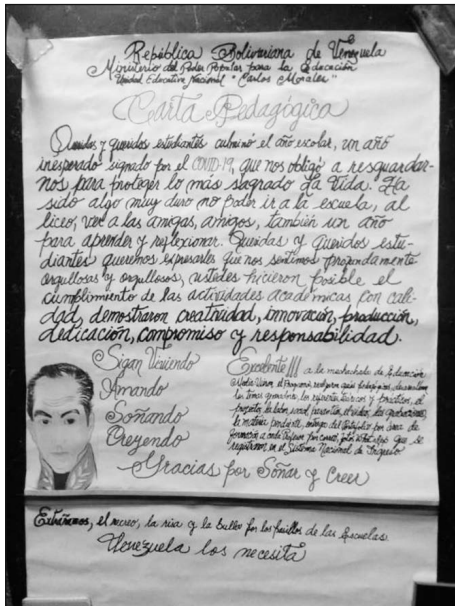 República Bolivariana de Venezuela
Ministerio del Poder Popular para la Educación
Unidad Educativa Nacional "Carlos Morales"
Carta Pedagógica
Queridas y queridos estudiantes culminó el año escolar, un año
inesperado signado por el COVID-19, que nos obligó a resguardar-
nos para proteger lo más sagrado La Vida. Ha
sido algo muy duro no poder ir a la escuela, al
liceo, ver a las amigas, amigos, también un año
para aprender y reflexionar. Queridas y queridos estu-
diantes queremos expresarles que nos sentimos profundamente
orgullosas y orgullosos, ustedes hicieron posible el
cumplimiento de las actividades académicas con cali-
dad, demostraron creatividad, innovación, producción,
dedicación, compromiso y responsabilidad.
Sigan Viviendo
Amando
Soñando
Creyendo
Excelente!!! a la muchachada de Educación
Media el Programa, realizaron guías pedagógicas, desarrollaron
los temas generadores, los referentes teóricos y prácticos, el
proyecto de labor social, pasantías,
la materia pendiente, entrega del Portafolio por área de
formación a cada Profesor por correo, fotos WhatsApp que se
registraron en el Sistema Nacional de
Gracias por Soñar y Creer
Extrañamos, el recreo, la risa y la bulla por los pasillos de las Escuelas.
Venezuela los necesita